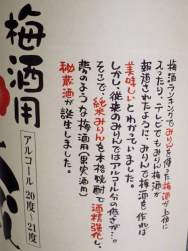 梅酒ランキングでみりんを使った梅酒が上位に
入ったり、テレビでもみりん梅酒が
報道されたように、みりんで梅酒を作れば
美味しいとわかっていました。
しかし、従来のみりんではアルコール分の低さが…。
そこで、純米みりんを本格焼酎で酒精強化し、
夢のような梅酒用(果実酒用)
秘蔵酒が誕生しました。
梅酒用
アルコール20度~21度